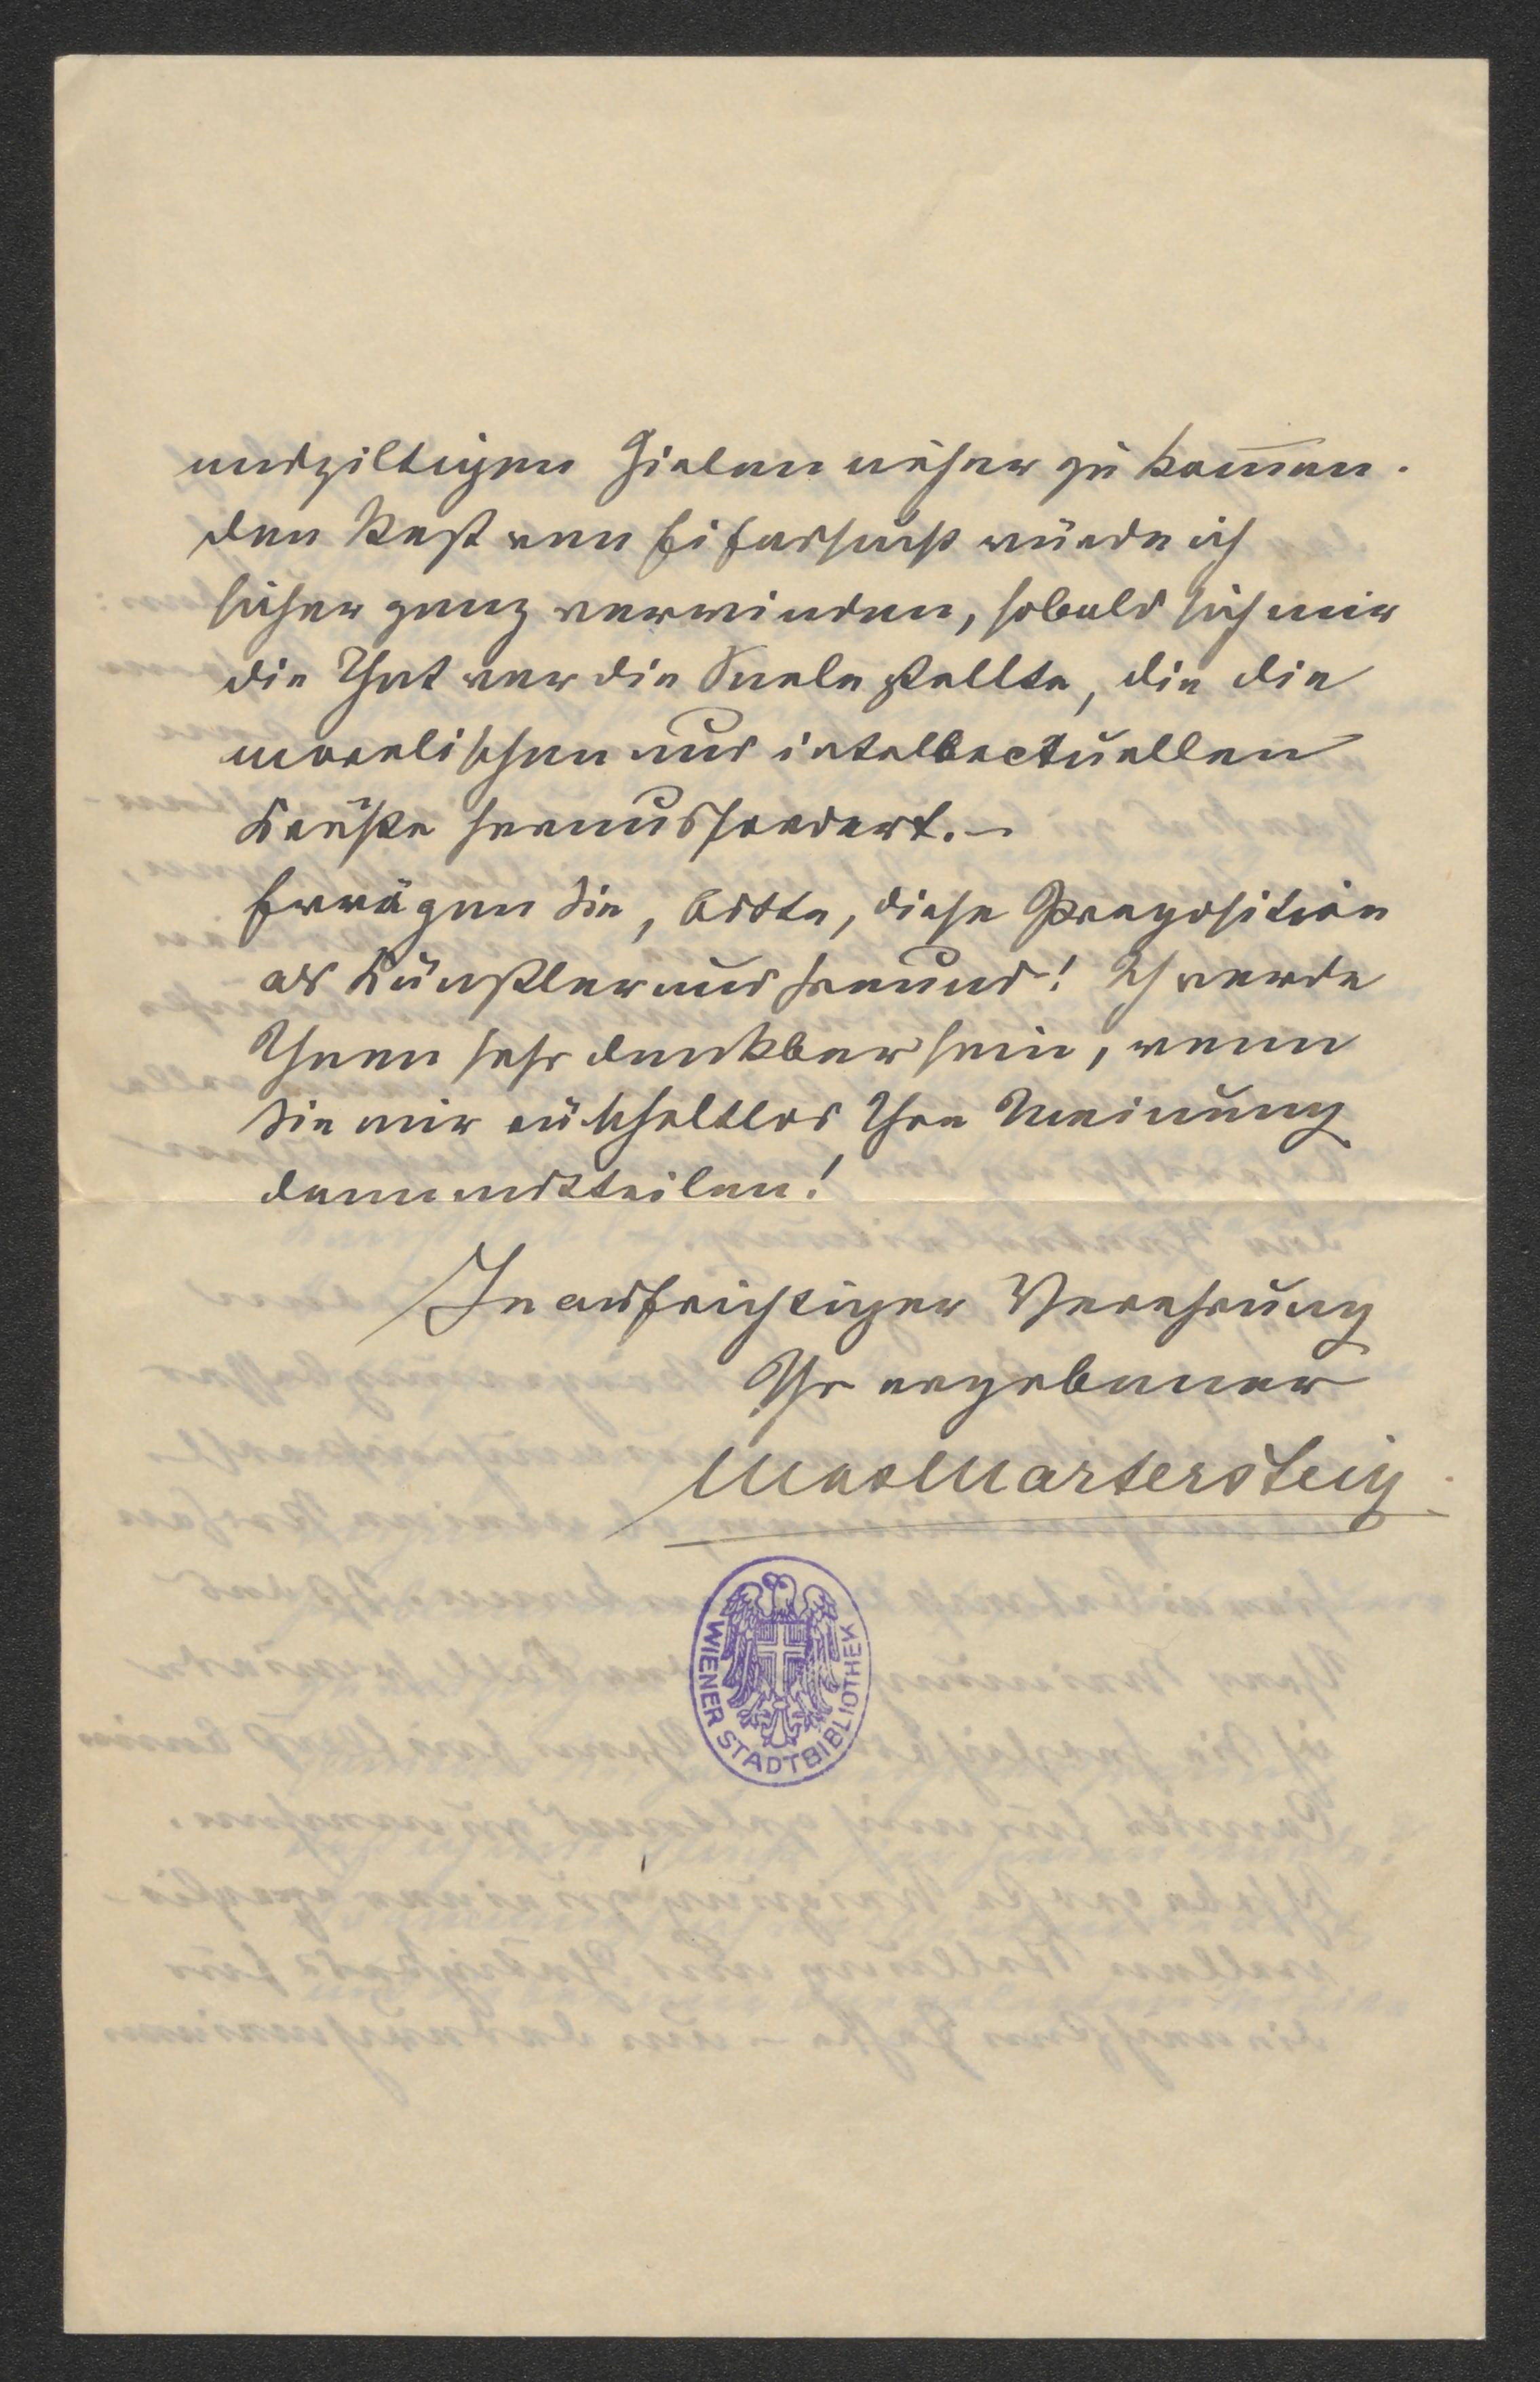 endgiltigen Zielen näher zu kom̄en.
Den Rest von Eifersucht würde ich
sicher ganz verwinden, sobald sich mir
die That vor die Seele stellte, die die
moralischen und intellectuellen
Kräfte herausfordert. –
Erwägen Sie, bitte, diese Praeposition
als Künstler und Freund! Ich werde
Ihnen sehr dankbar sein, wenn
Sie mir rückhaltlos Ihre Meinung
dann mitteilen!
In aufrichtiger Verehrung
Ihr ergebener
Max Martersteig.
WIENER STADTBIBLIOTHEK